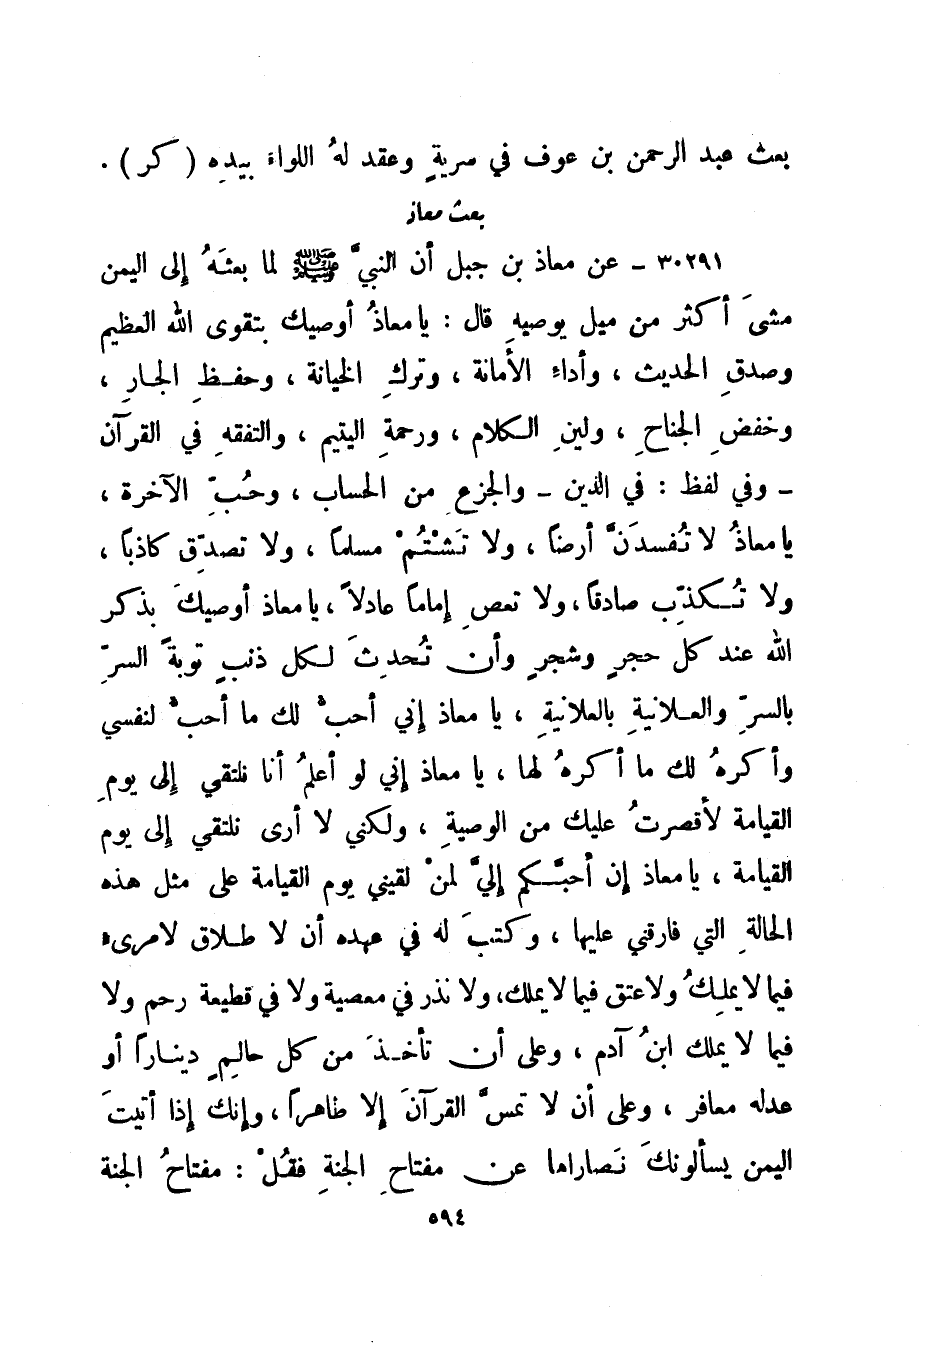 بعث عبد الرحمن بن عوف في سريةٍ وعقد لهُ اللواءَ بيدِه ( كر ) .
بعث معاذ
٣٠٢٩١ ـ عن معاذ بن جبل أن النبيَّ ﷺ لما بعثَهُ إلى اليمن
مشىَ أكثر من ميل يوصيهِ قال : يا معاذُ أوصيك بتقوى الله العظيم
وصدقِ الحديث ، وأداءِ الأمانة ، وتركِ الخيانة ، وحفـظِ الجـارِ ،
وخفضِ الجناحِ ، ولينِ الـكلام ، ورحمةِ اليتيم ، والتفقهِ في القرآن
ـ وفي لفظ : في الدين ـ والجزعِ من الحساب ، وحُبِّ الآخرة ،
يا معاذُ لا تُفسدَنَّ أرضاً ، ولا تَشْتُمْ مسلماً ، ولا تصدِّق كاذباً ،
ولا تُـكذِّب صادقاً ، ولا تعصِ إماماً عادلاً ، يا معاذ أوصيكَ بذكر
الله عند كل حجرٍ وشجرٍ وأن تُحدِثَ لـكل ذنبٍ توبةً السرِّ
بالسرِّ والعـلانيةِ بالعلانيةِ ، يا معاذ إني أحبُّ لك ما أحبُّ لنفسي
وأكرهُ لك ما أكرهُ لها ، يا معاذ إني لو أعلمُ أنا نلتقي إلى يومِ
القيامة لأقصرتُ عليك من الوصيةِ ، ولكني لا أرى نلتقي إلى يوم
القيامة ، يا معاذ إن أحبَّـكم إليَّ لمنْ لقيني يوم القيامة على مثل هذه
الحالةِ التي فارقني عليها ، وكتبَ له في عهده أن لا طـلاق لامرىء
فيما لا يملِكُ ولا عتق فيما لا يملك، ولا نذر في معصية ولا في قطيعة رحم ولا
فيما لا يملك ابنُ آدم ، وعلى أن تأخـذَ من كل حالِمٍ دينـاراً أو
عدله معافر ، وعلى أن لا تمسَّ القرآنَ إلا طاهراً ، وإنك إذا أتيتَ
اليمن يسألونكَ نَصاراها عن مفتاحِ الجنةِ فقُلْ : مفتاحُ الجنة
٥٩٤